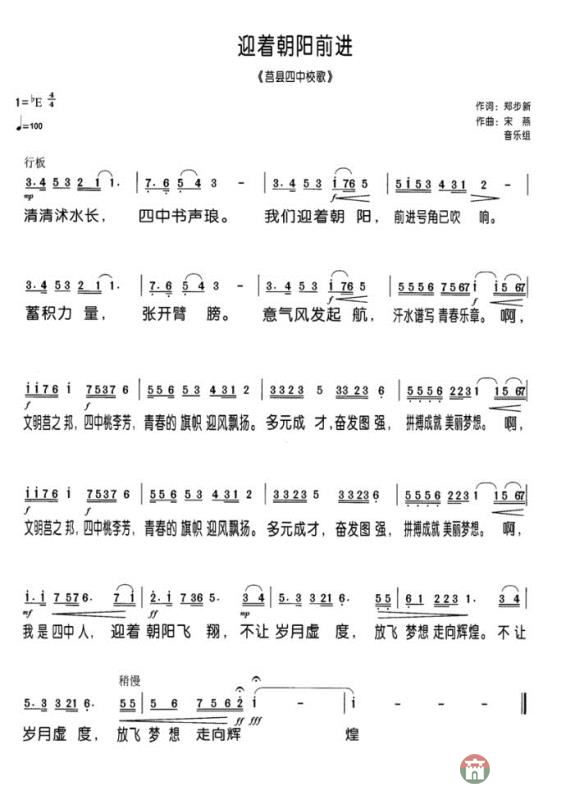 迎着朝阳前进
《莒县四中校歌》
1=♭E 4/4
作词：郑步新
♩=100
作曲：宋 燕
音乐组
行板
3.4 53 2 1 1. | 7.6 5 4 3 - | 3.4 53 1 76 5 | 5153 4 31 2 - |
mp f
清清沭水长， 四中书声琅。 我们迎着朝 阳， 前进号角已吹 响。
3.4 53 2 1 1. | 7.6 5 4 3 - | 3.4 53 1 76 5 | 5556 7567 1 1 5 67 |
f f
蓄积力 量， 张开臂 膀。 意气风发起 航， 汗水谱写 青春乐章。 啊，
1176 1 7537 6 | 555 53 4 31 2 | 3323 5 33 23 6 | 5556 2231 1 5 67 |
f f
文明莒之 邦，四中桃李芳， 青春的 旗帜 迎风飘扬。 多元成 才，奋发图 强， 拼搏成就 美丽梦想。 啊，
1176 1 7537 6 | 555 53 4 31 2 | 3323 5 33 23 6 | 5556 2231 1 5 67 |
f f
文明莒之 邦，四中桃李芳， 青春的 旗帜 迎风飘扬。 多元成才，奋发图 强， 拼搏成就 美丽梦想。 啊，
1. 1 7 5 76. 7 1 | 2.1 7365. 3 4 | 5.3 3321 6. 55 | 6 1 2 2 23 1. 3 4 |
mf f mp
我是 四中人， 迎着 朝阳飞 翔， 不让 岁月虚 度， 放飞 梦想 走向辉煌。 不让
稍慢
5.3 3321 6. 55 | 5 6 7 5 6 2 1 | 1 - - - ‖
ff fff
岁月虚 度， 放飞 梦 想 走向辉 煌